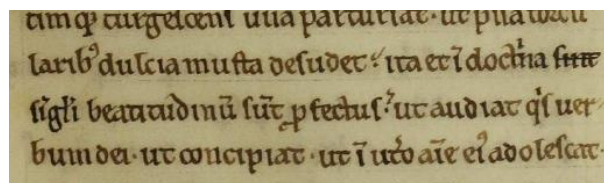 timq; turgescent uua parturiat · ut p̄ua
larib⁹ dulcia musta desudet ita et ī doct̄na sunt
sīgli beatitudinū sūt ꝓfectus ut audiat q̇s uer-
bum dei · ut concipiat · ut ī ut̓o aīe ei⁹ adolescat ·